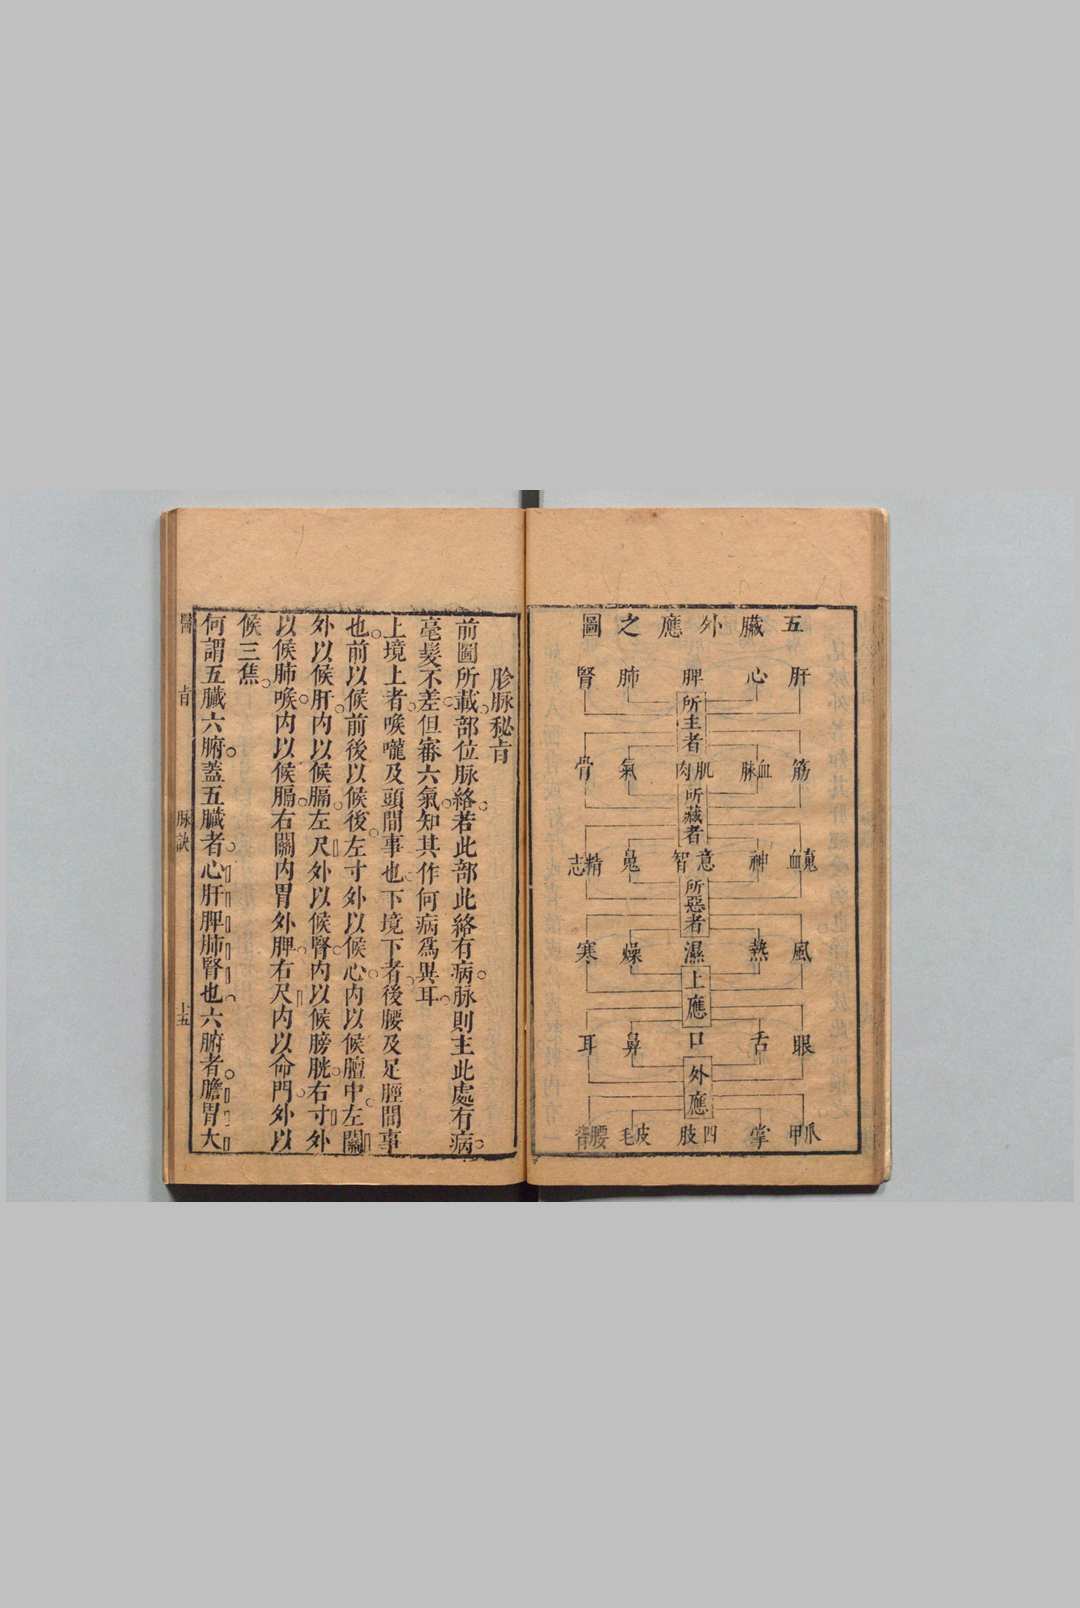 五臟外應之圖
肝 心 脾 肺 腎
所主者
筋 血脉 肌肉 氣 骨
所藏者
血魂 神 意智 魄 精志
所惡者
風 熱 濕 燥 寒
上應
眼 舌 口 鼻 耳
外應
爪甲 掌 四肢 皮毛 腰背
胗脉秘旨
前圖所載部位脉絡若此部此絡有病脉則主此處有病
毫髮不差但審六氣知其作何病爲異耳
上境上者喉嚨及頭間事也下境下者後腰及足脛間事
也前以候前後以候後左寸外以候心内以候膻中左關
外以候肝内以候膈左尺外以候腎内以候膀胱右寸外
以候肺喉内以候膈右關内胃外脾右尺内以命門外以
候三焦
何謂五臟六腑蓋五臟者心肝脾肺腎也六腑者膽胃大
醫 旨 脉訣 十五